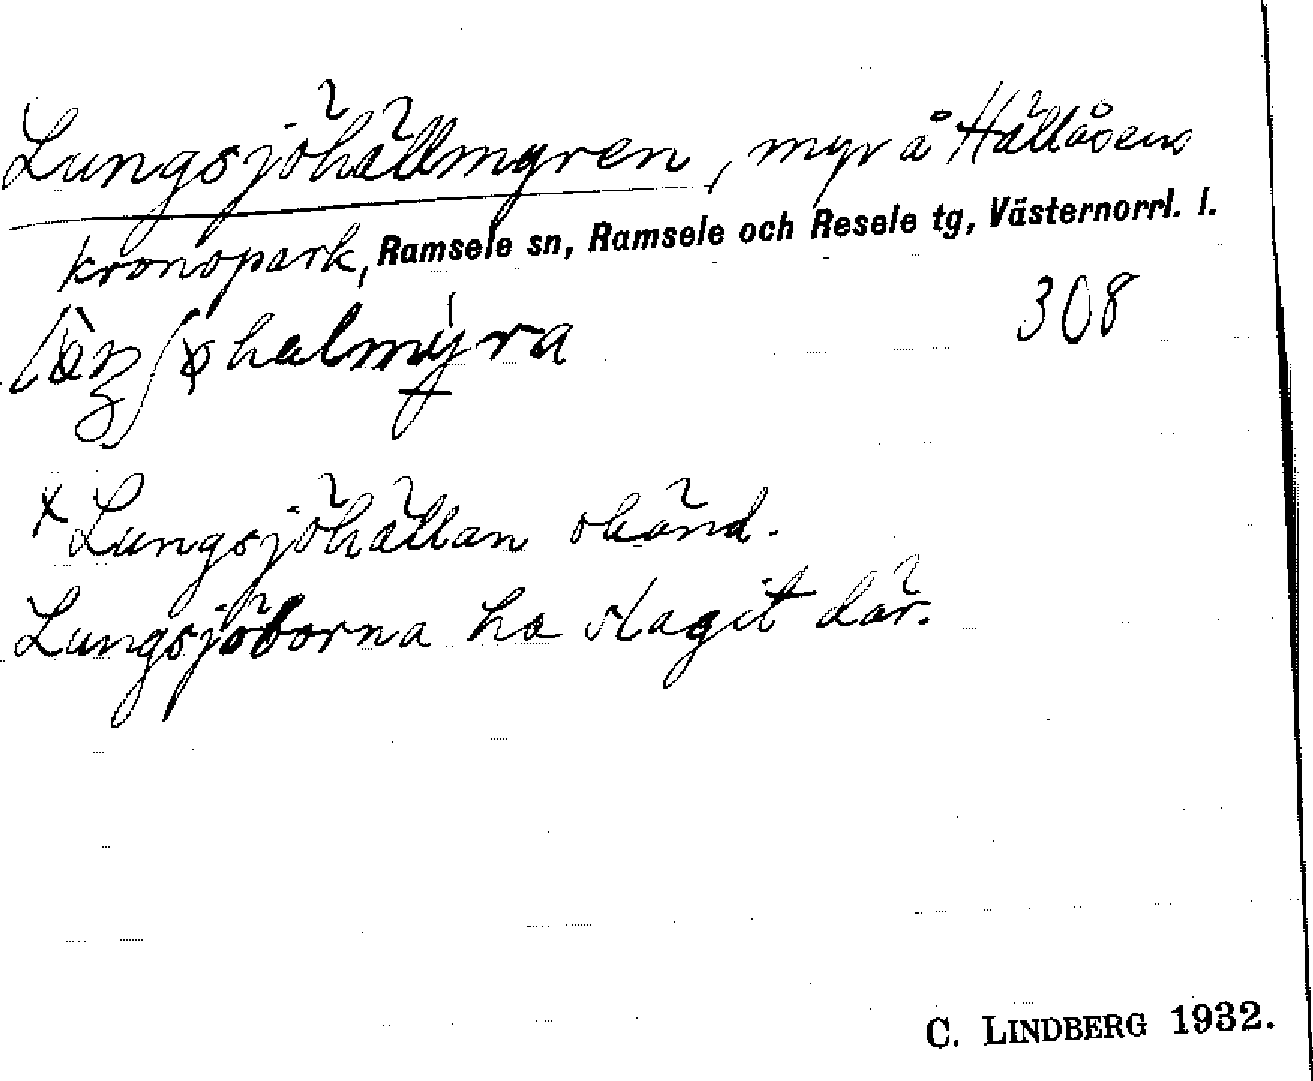 Lungsjöhällmyren, myr å Hällåsens
kronopark, Ramsele sn, Ramsele och Resele tg, Västernorrl. l.
308
*Lungsjöhällan okänd.
Lungsjöborna ha slagit där.
C. LINDBERG 1932.